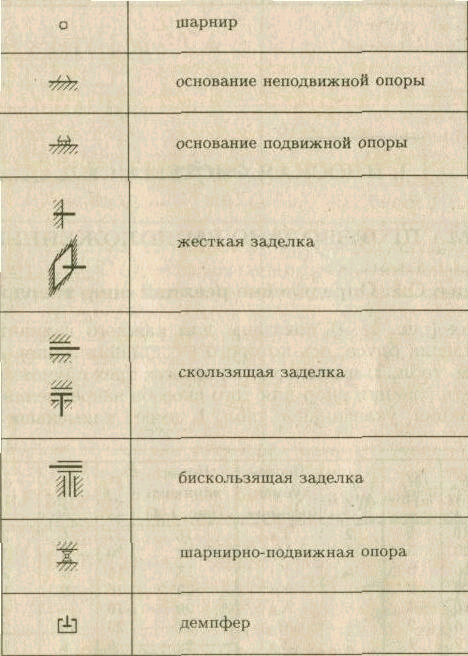 шарнир
основание неподвижной опоры
основание подвижной опоры
жесткая заделка
скользящая заделка
бискользящая заделка
шарнирно-подвижная опора
демпфер